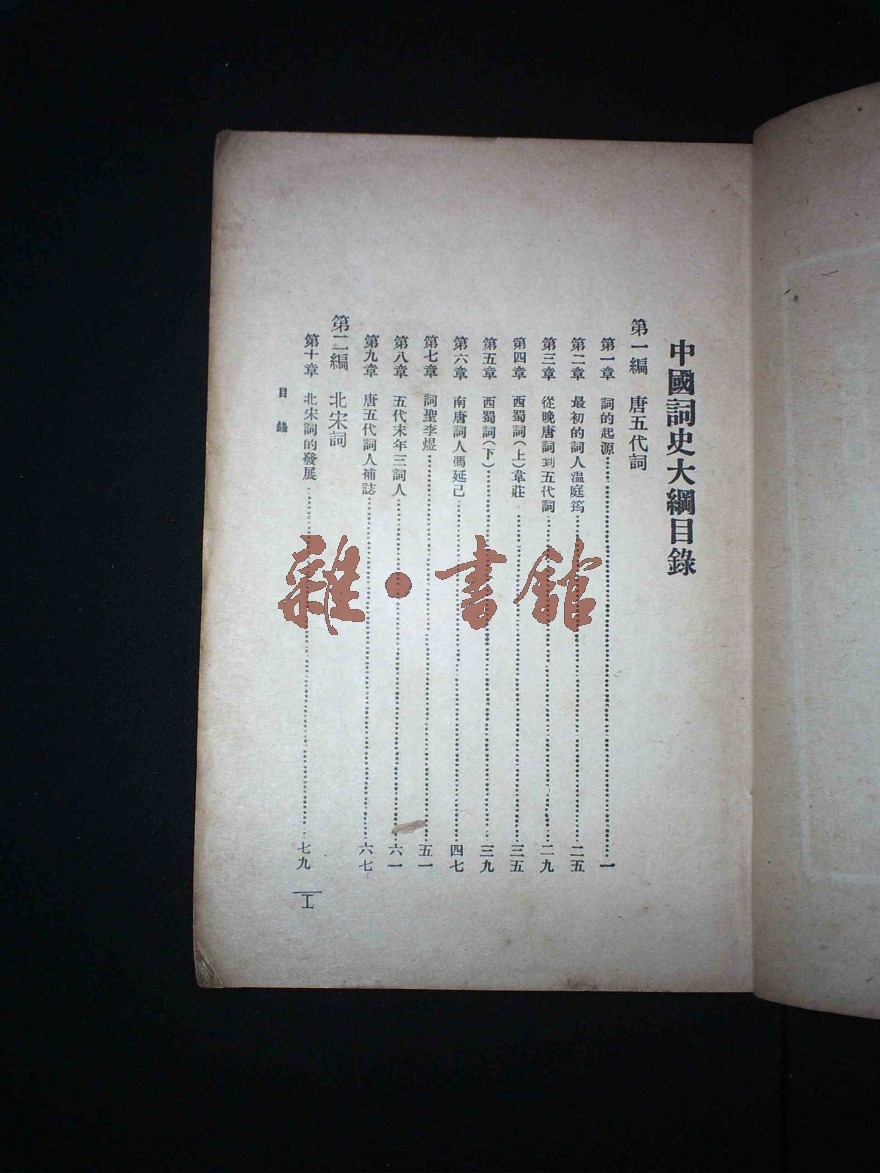 中國詞史大綱目錄
第一編 唐五代詞
第一章 詞的起源 一
第二章 最初的詞人溫庭筠 二五
第三章 從晚唐詞到五代詞 二九
第四章 西蜀詞(上)韋莊 三五
第五章 西蜀詞(下) 三九
第六章 南唐詞人馮延己 四七
第七章 詞聖李煜 五一
第八章 五代末年三詞人 六一
第九章 唐五代詞人補誌 六七
第二編 北宋詞
第十章 北宋詞的發展 七九
目錄
I
雜·書館